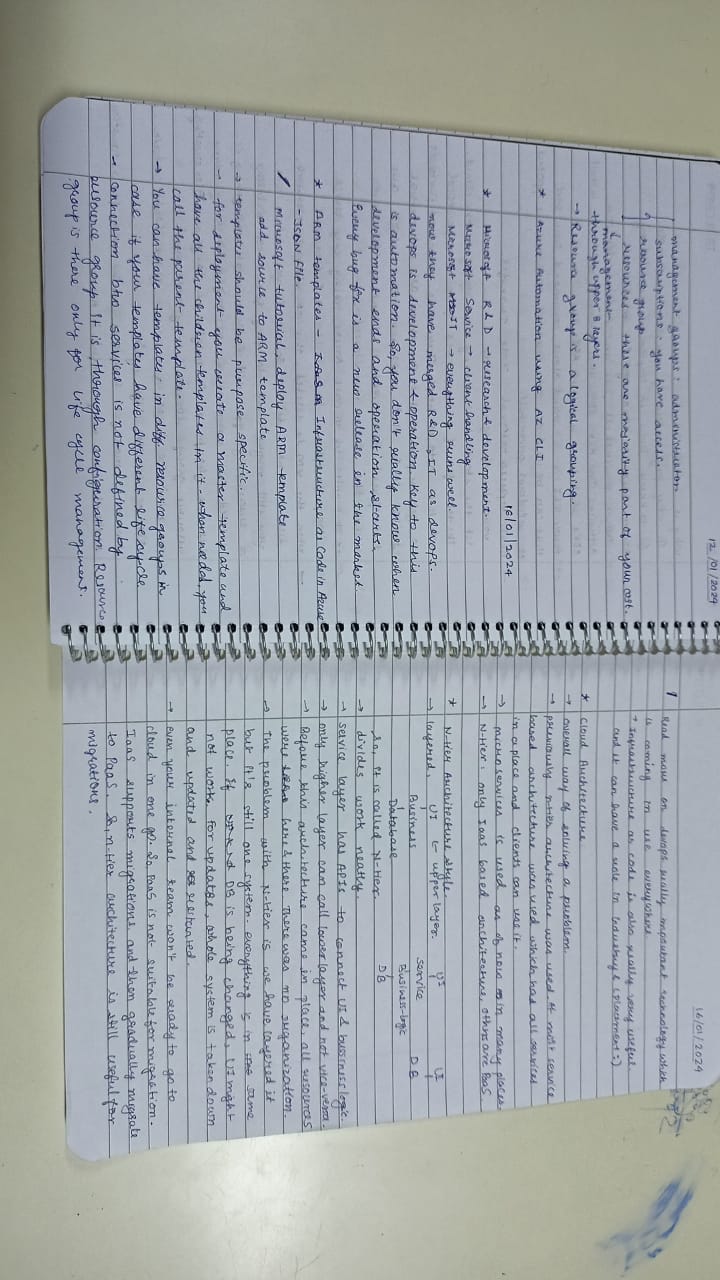 12/01/2024
management groups : administration
subscriptions : you have access.
resource group
resources these are majority part of your cost.
management
through upper 3 layers.
→ Resource group is a logical grouping.
* Azure Automation using AZ CLI
16/01/2024
* Microsoft R&D → research & development.
Microsoft Service → client handling
Microsoft IT → everything runs well.
now they have merged R&D, IT as devops.
devops is development & operation key to this
is automation. So, you don't really know when
development ends and operation starts.
Every bug fix is a new release in the market
* ARM templates - Infrastructure as Code in Azure
- JSON file.
Microsoft tutorial, deploy ARM template
add source to ARM template
→ templates should be purpose specific.
→ for deployment you create a master template and
have all the children templates in it. when needed, you
call the parent template.
→ You can have templates in diff resource groups in
case if your templates have different life cycle
→ connection btw services is not defined by
resource group. It is through configuration. Resource
group is there only for life cycle management.
16/01/2024
Read more on devops really important technology which
is coming in use everywhere
→ Infrastructure as code is also really very useful
and it can have a role in Industry & (placement :)
* Cloud Architecture
→ overall way of solving a problem.
→ previously ntier architecture was used. At most service
based architecture was used which had all services
in a place and clients can use it.
→ microservices is used as of now in many places
→ N-tier : only IaaS based architecture, others are PaaS
* N-tier Architecture Style
→ layered. UI ← upper layer. UI UI
Business service
Database Business-logic DB
So, it is called N-tier. DB
→ divides work neatly.
→ service layer has APIs to connect UI & business logic.
→ only higher layer can call lower layer and not vice-versa.
→ Before this architecture came in place, all resources
were here & there. There was no organization.
→ The problem with N-tier is we have layered it
but it's still one system. everything is in the same
place. If DB is being changed, UI might
not work. For updates, whole system is taken down
and updated and restarted.
→ even your internal team won't be ready to go to
cloud in one go. So PaaS is not suitable for migration.
IaaS supports migrations and then gradually migrate
to PaaS. So, n-tier architecture is still useful for
migrations.